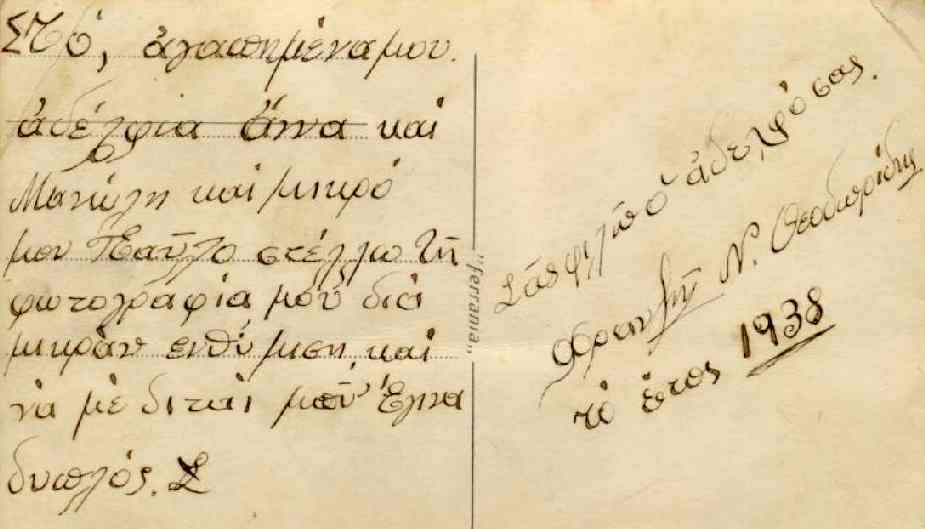 Στό, ἀγαπημένα μου.
ἀδέλφια Ἄννα καί
Μανώλη καί μικρό
μου Παῦλο στέλλω τῆ
φωτογραφία μου διά
μικράν ενθύμιση, καί
νά μέ διται μου
διπλός.
"ferrania"
Σᾶς φιλῶ ὁ ἀδελφό σας.
Φραντζῆ Ν. Θεοδωρίδης
τό ἔτος 1938